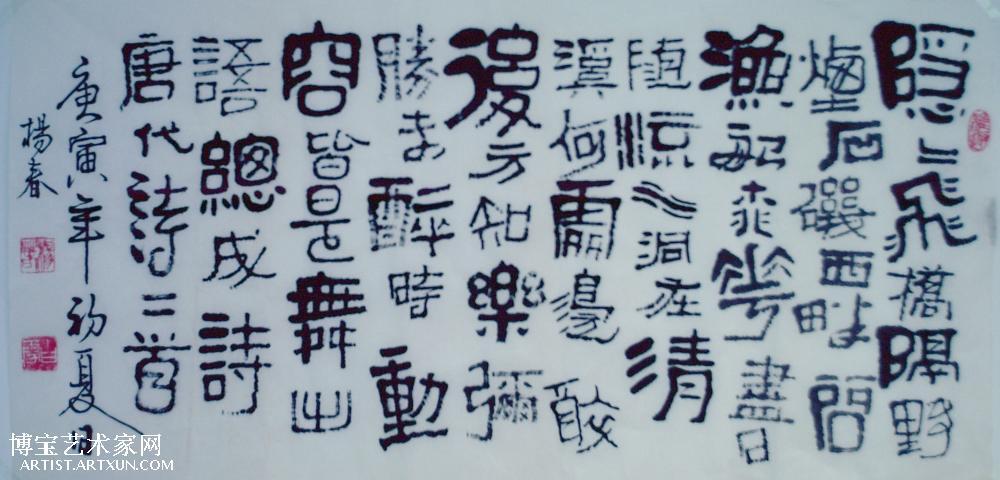 隐〻飛橋隔野
煙石磯西畔問
漁船桃花盡日
随流水洞在清
溪何處邊飲
後方知樂彌
勝未醉時動
容皆是舞出
語總成詩
唐代诗二首
庚寅年初夏日
楊春
博宝艺术家网
ARTIST.ARTXUN.COM